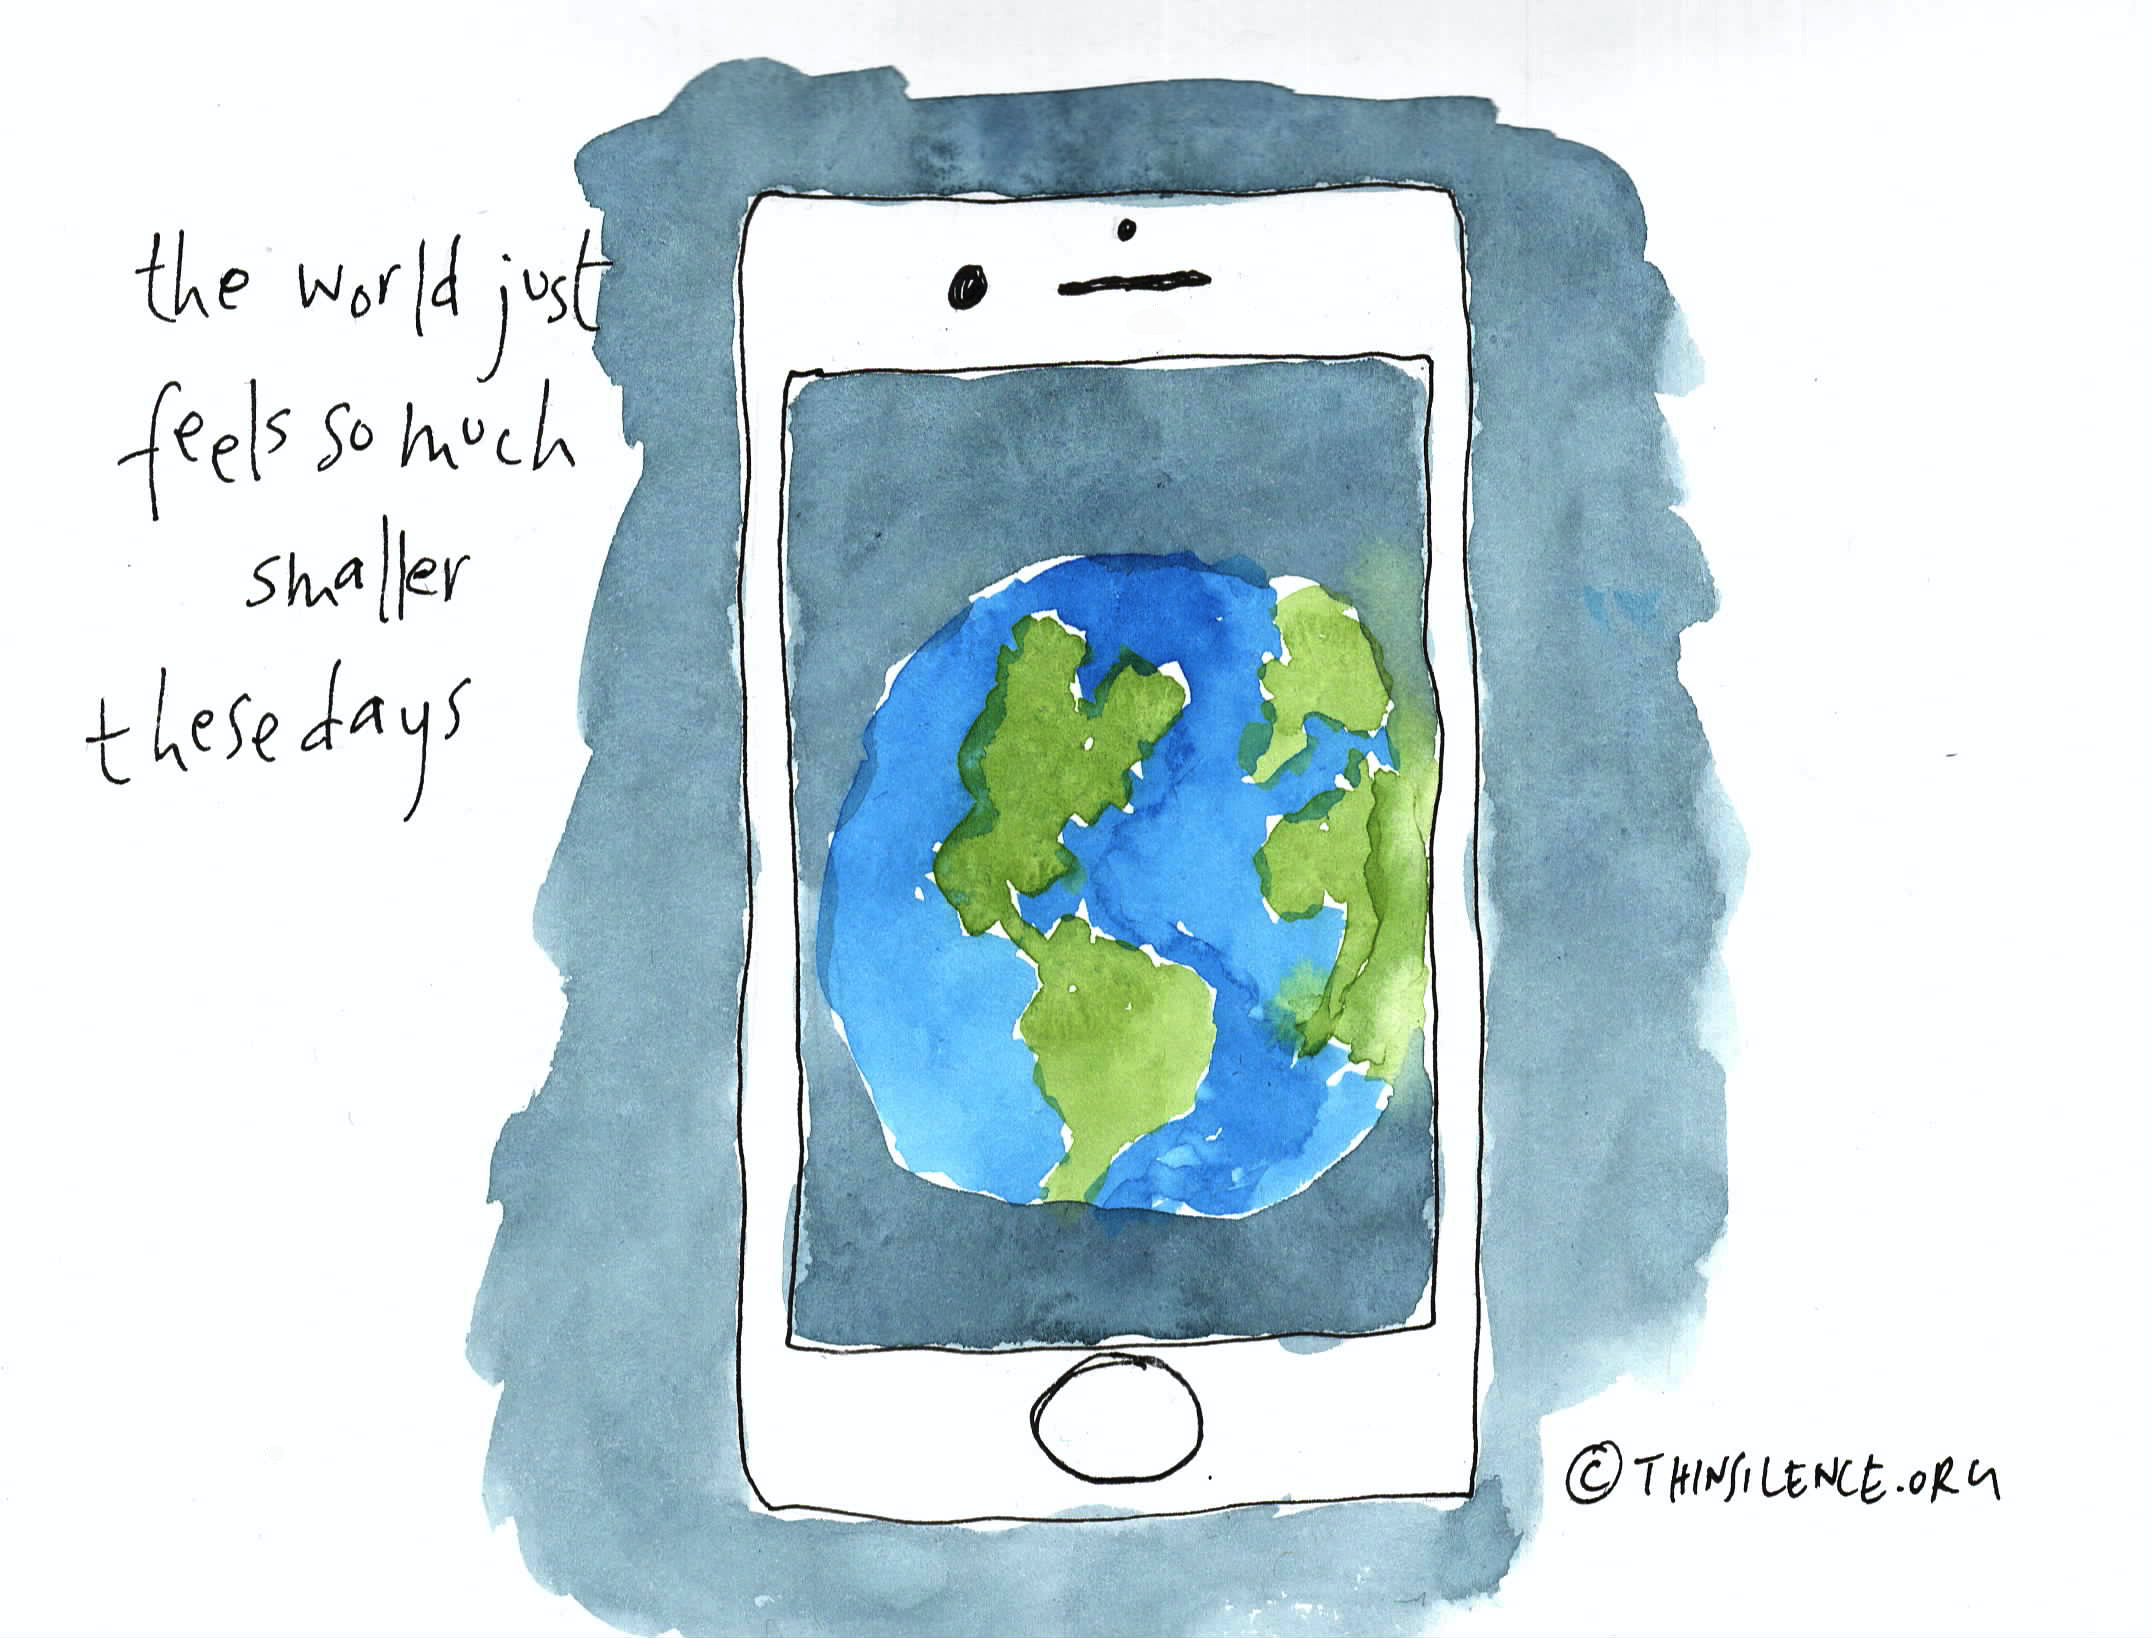 the world just
feels so much
smaller
these days
© THINSILENCE.ORG